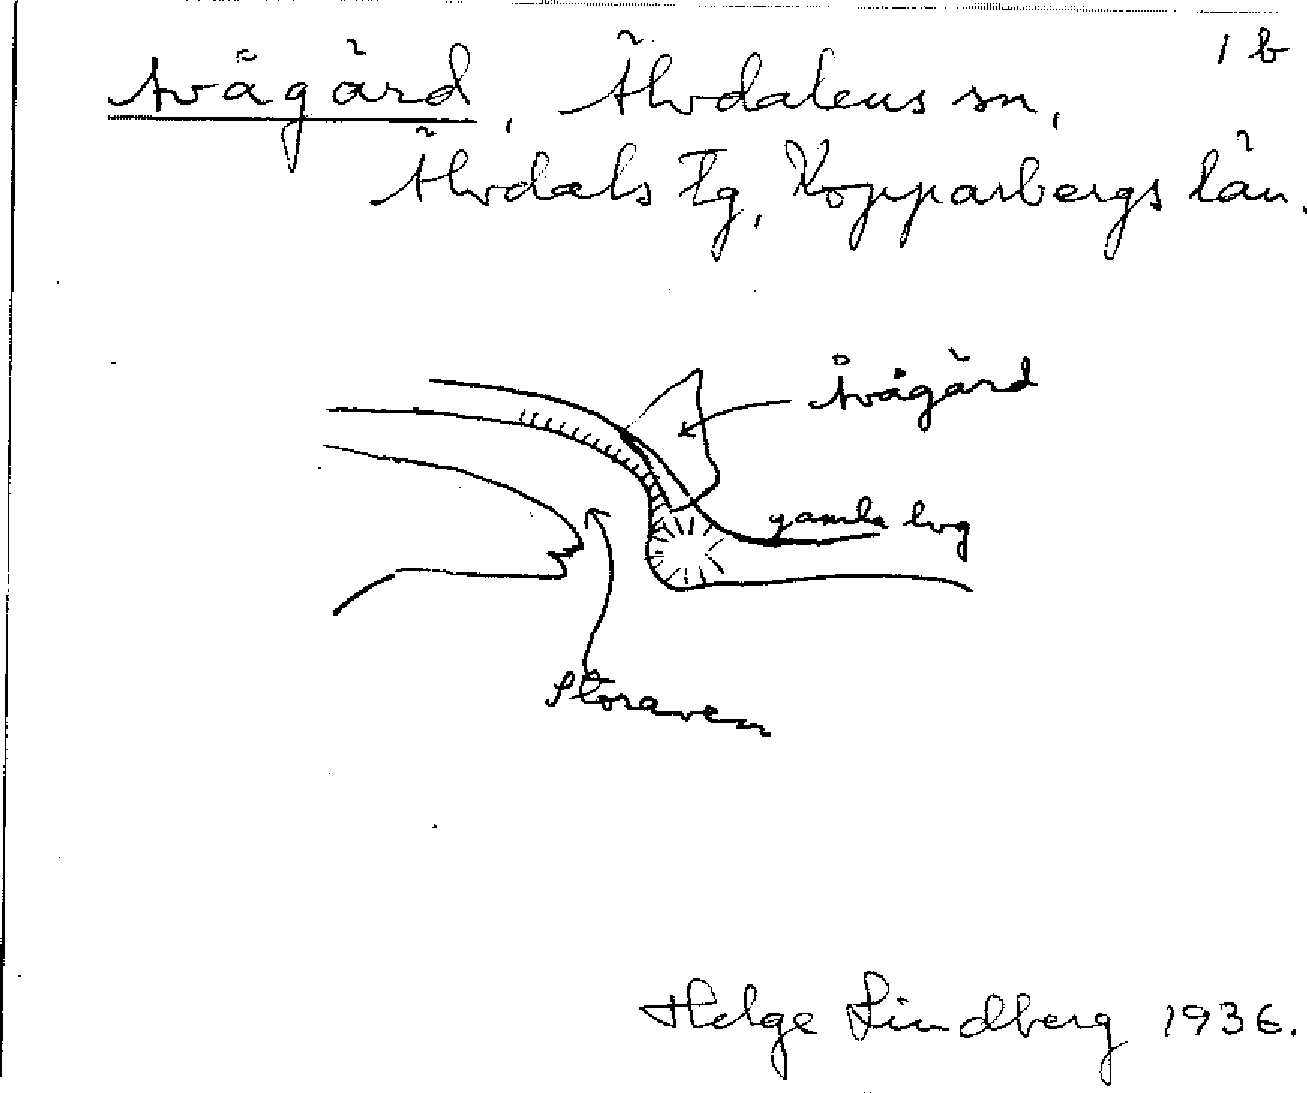 1 b
Avågård, Älvdalens sn,
Älvdals tg, Kopparbergs län.
Åvågård
gamla lvg
Storaven
Helge Lindberg 1936.